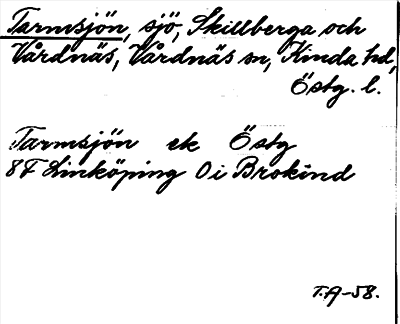 Tarmsjön, sjö, Skillberga och
Vårdnäs, Vårdnäs sn, Kinda hd,
Östg. l.
Tarmsjön ek Östg
8F Linköping 0i Brokind
T.A-58.